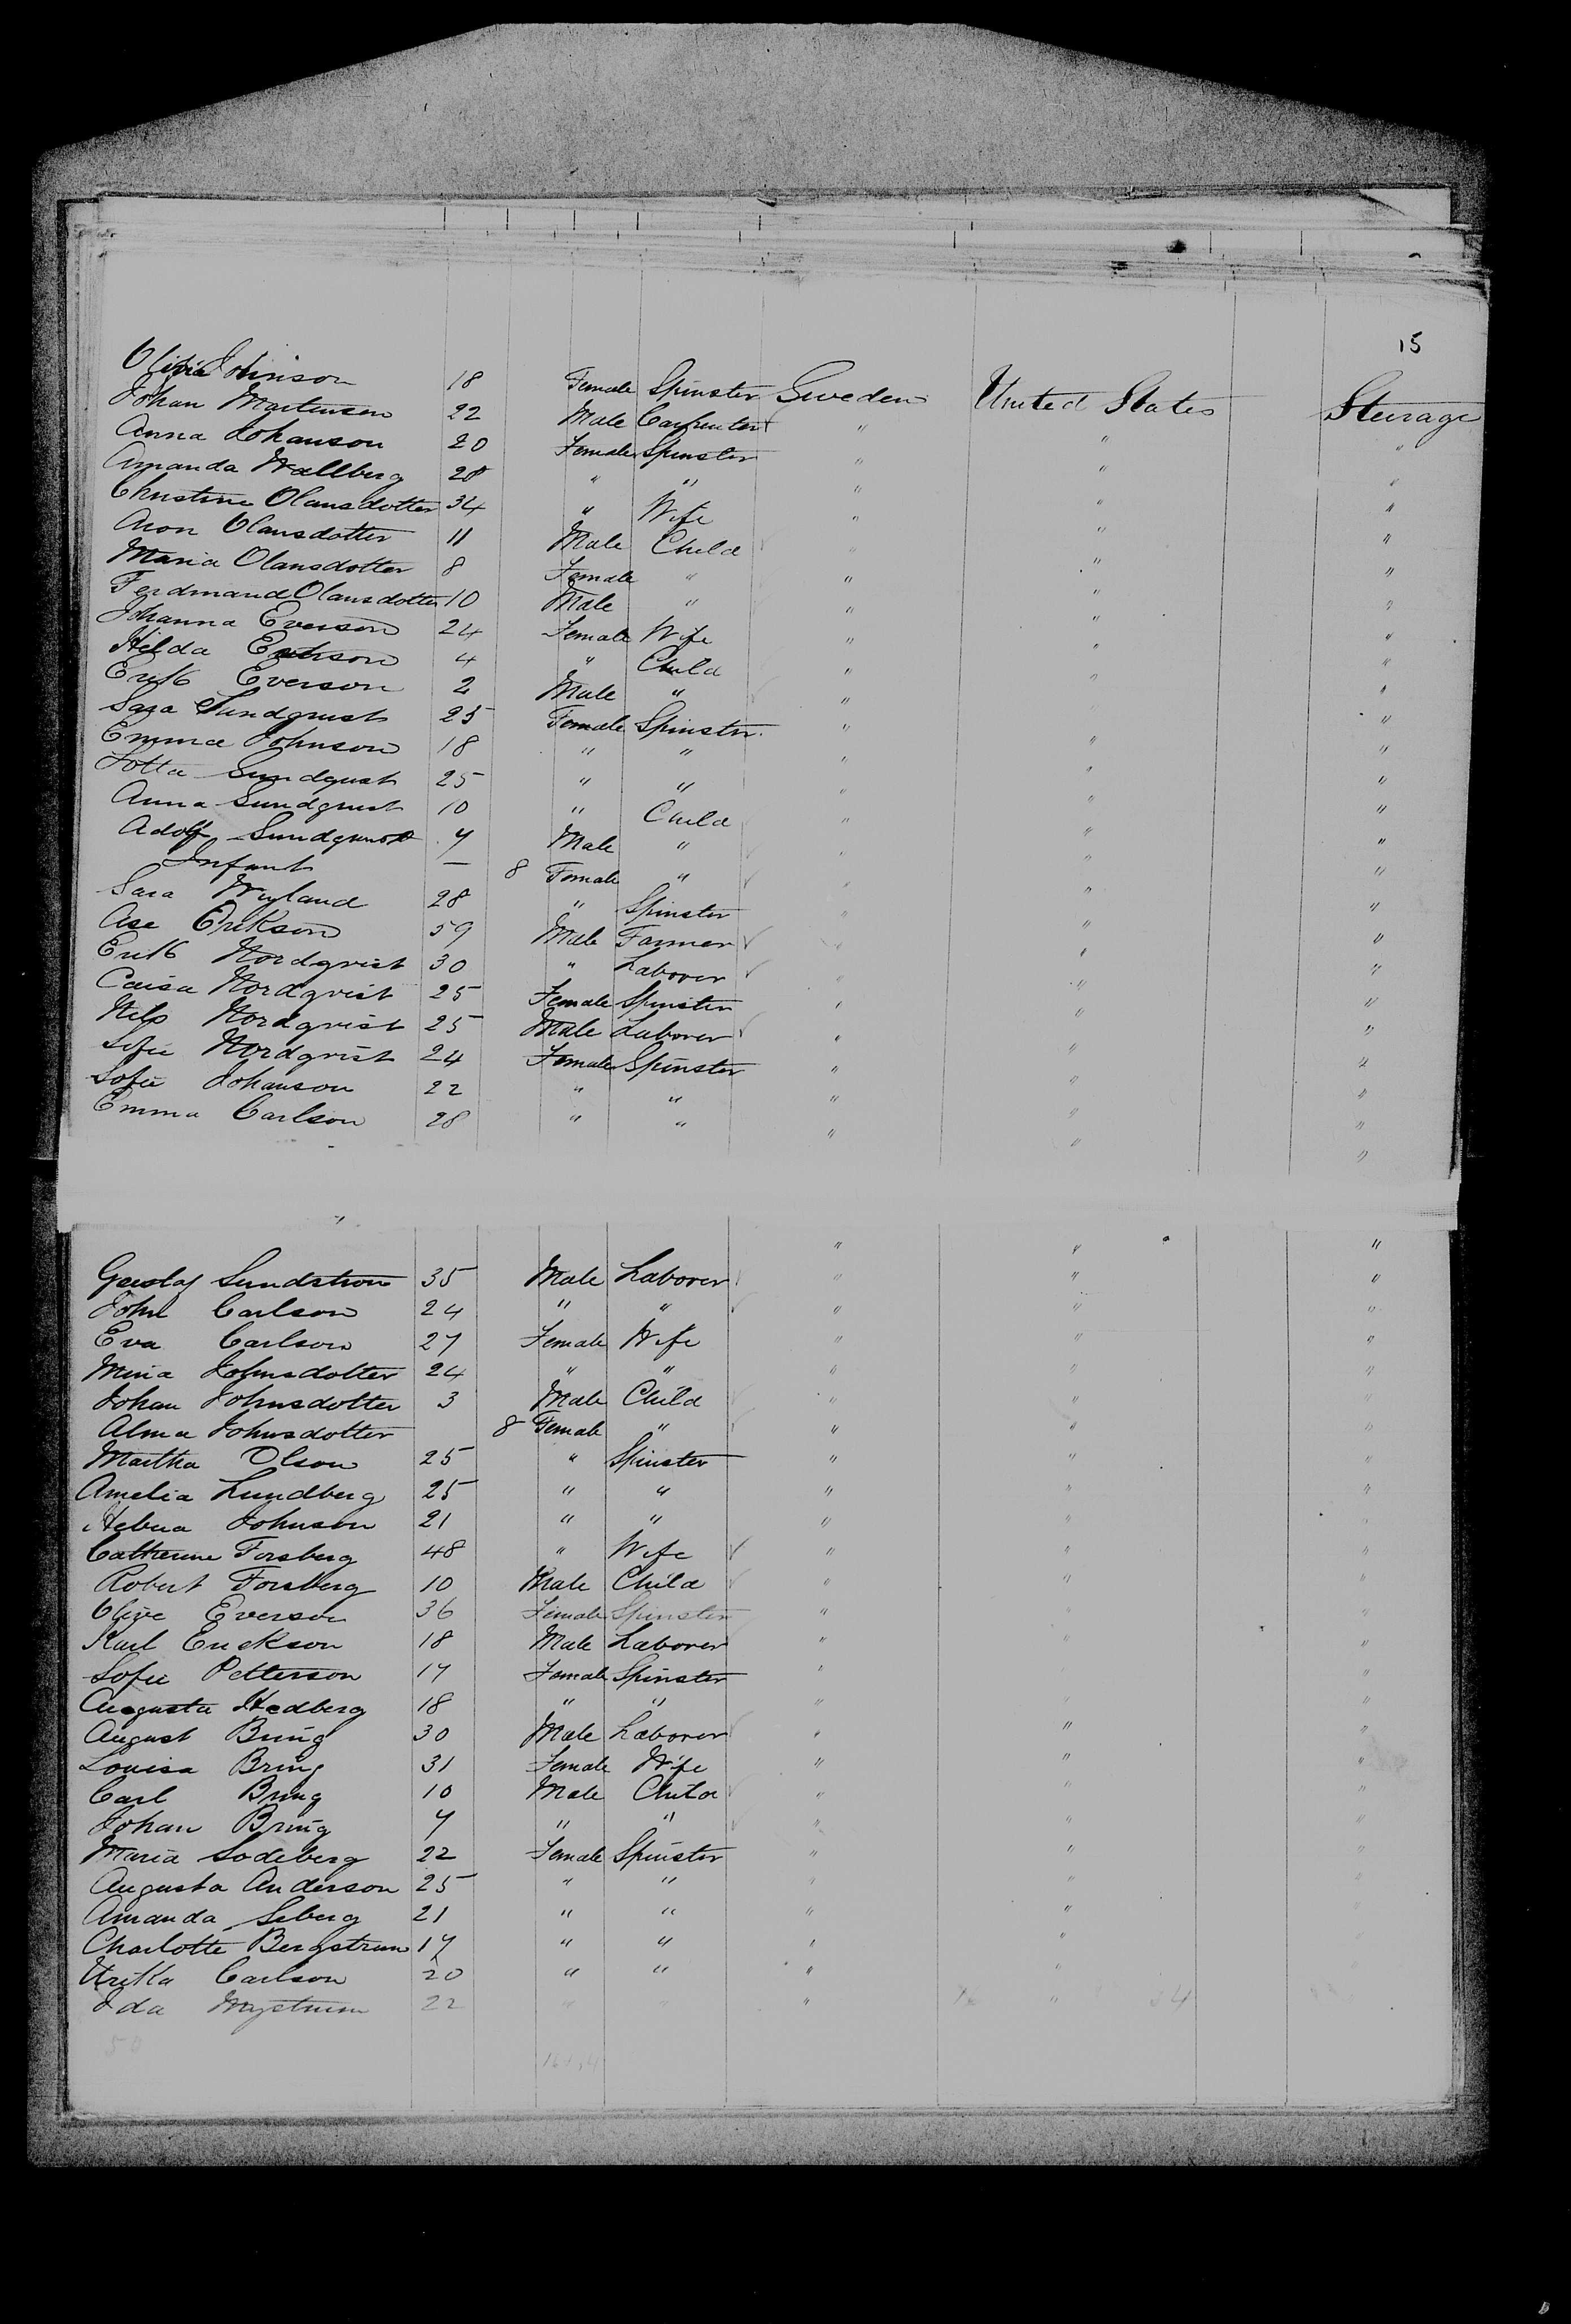 15
Olivia Johnson 18 Female Spinster Sweden United States Steerage
Johan Martenson 22 Male Carpenter " " "
Anna Johanson 20 Female Spinster " " "
Amanda Wallberg 28 " " " " "
Christine Olansdotter 34 " Wife " " "
Aron Olansdotter 11 Male Child " " "
Maria Olansdotter 8 Female " " " "
Ferdinand Olansdotter 10 Male " " " "
Johanna Everson 24 Female Wife " " "
Hilda Everson 4 " Child " " "
Erik Everson 2 Male " " " "
Sara Sundqvist 25 Female Spinster " " "
Emma Johnson 18 " " " " "
Lotta Sundqvist 25 " " " " "
Anna Sundqvist 10 " Child " " "
Adolf Sundqvist 7 Male " " " "
Infant — 8 Female " " " "
Sara Wiyland 28 " Spinster " " "
Ase Erikson 59 Male Farmer " " "
Erik Nordqvist 30 " Laborer " " "
Caisa Nordqvist 25 Female Spinster " " "
Nils Nordqvist 25 Male Laborer " " "
Sofie Nordqvist 24 Female Spinster " " "
Sofie Johanson 22 " " " " "
Emma Carlson 28 " " " " "
Gustaf Sundstrom 35 Male Laborer " " "
John Carlson 24 " " " " "
Eva Carlson 27 Female Wife " " "
Mina Johnsdotter 24 " " " " "
Johan Johnsdotter 3 Male Child " " "
Alma Johnsdotter 8 Female " " " "
Martha Olson 25 " Spinster " " "
Amelia Lundberg 25 " " " " "
Johnson 21 " " " " "
Catherine Forsberg 48 " Wife " " "
Robert Forsberg 10 Male Child " " "
Olive Everson 36 Female Spinster " " "
Karl Erickson 18 Male Laborer " " "
Sofie Petterson 17 Female Spinster " " "
Augusta Hedberg 18 " " " " "
August Bring 30 Male Laborer " " "
Louisa Bring 31 Female Wife " " "
Carl Bring 10 Male Child " " "
Johan Bring 7 " " " " "
Maria Sodeberg 22 Female Spinster " " "
Augusta Anderson 25 " " " " "
Amanda Seberg 21 " " " "
Charlotte Bergstrum 17 " " " "
Carlson 20 " " " "
Ida Nystrum 22 " " " "
50